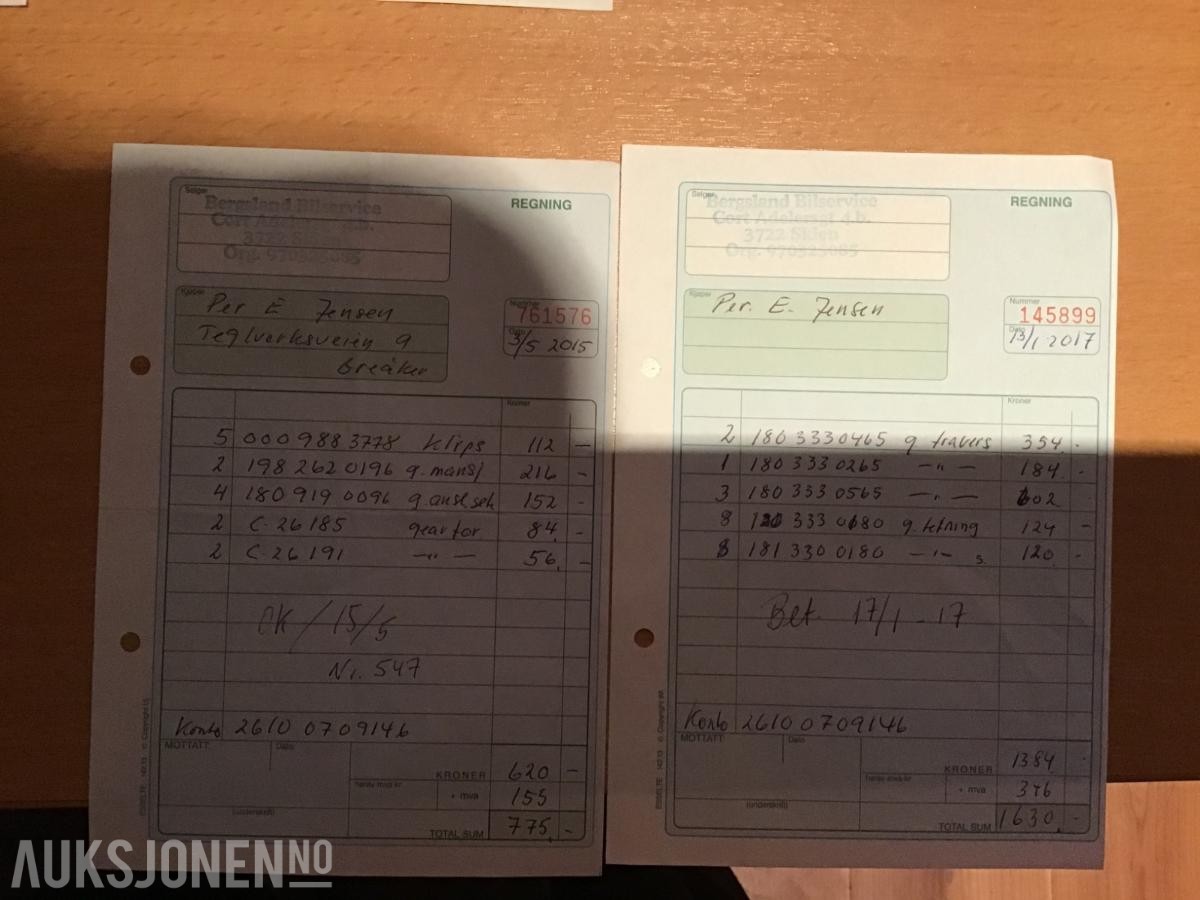 Selger
Bergsland Bilservice
Cort Adelersgt 4.b.
3722 Skien
Org. 970523065
REGNING
Kjøper
Per E Jensen
Teglverksveien 9
Greåker
Nummer
761576
Dato
3/5 2015
Kroner
5 0009883778 klips 112 -
2 198 262 0196 g.mansj 216 -
4 180 919 0096 g.ansl.seh 152 -
2 C.26185 gearfor 84. -
2 C.26191 -"- 56. -
OK / 15/5
Nr. 547
Konto 2610 0709146
MOTTATT:
Dato
KRONER 620 -
herav mva kr
+ mva 155
(underskrift)
TOTAL SUM 775. -
ESSELTE
© Copyright
Selger
Bergsland Bilservice
Cort Adelersgt 4.b.
3722 Skien
Org. 970523065
REGNING
Kjøper
Per. E. Jensen
Nummer
145899
Dato
13/1 2017
Kroner
2 180 333 0465 g travers 354 -
1 180 333 0265 -"- 184 -
3 180 333 0565 -"- 602
8 333 0680 g.tetning 124 -
8 181 330 0180 -"- s. 120 -
Bet. 17/1 - 17
Konto 2610 0709146
MOTTATT:
Dato
KRONER 1384
herav mva kr
+ mva 346
(underskrift)
TOTAL SUM 1630. -
ESSELTE
© Copyright
AUKSJONEN.NO